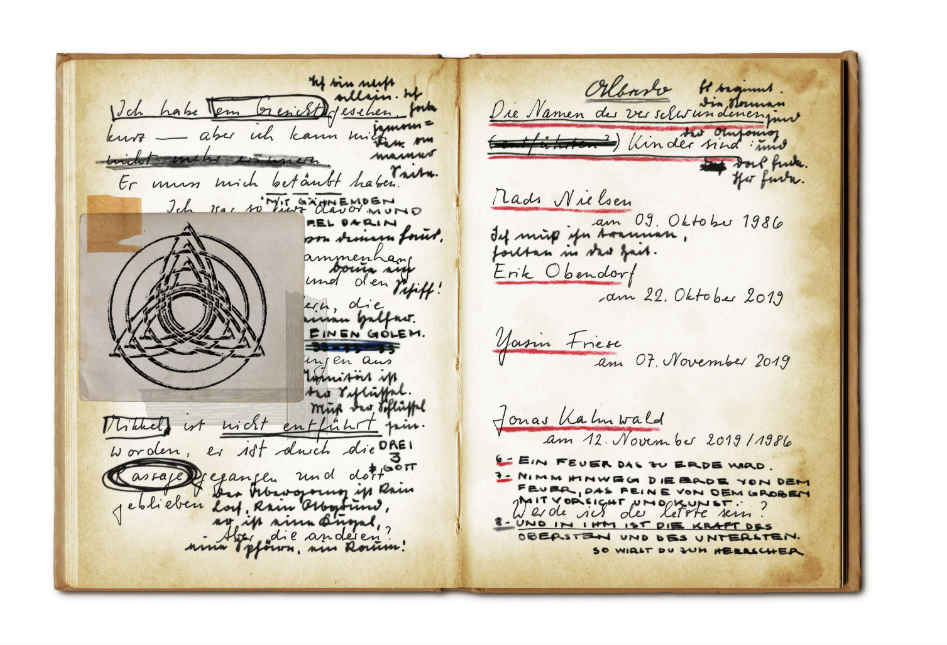 Ich bin nicht
allein. Ich
Ich habe ein Gesicht gesehen,
kurz — aber ich kann mich
nicht mehr erinnern
meiner
Seite.
Er muss mich betäubt haben.
MIT GÄHNEMDEN
Ich war so kurz davor MUND
DARIN
von deinem Haus,
baue ein
und den Schiff!
die
einen Helfer.
EINEN GOLEM.
aus
ist
der Schlüssel.
Muß der Schlüssel
sein.
Mikkel ist nicht entführt
worden, er ist durch die DREI
3
Passage gegangen und dort GOTT
geblieben
Der Übergang ist kein
Loch, kein Abgrund,
er ist eine Kugel,
Aber die anderen?
eine Sphäre, ein Raum!
Es beginnt.
Die Namen der verschwundenen
(entführten?) Kinder sind:
der Anfang
und
das Ende.
Ihr Ende.
Mads Nielsen
am 09. Oktober 1986
Ich muß ihn trennen,
in der Zeit.
Erik Obendorf
am 22. Oktober 2019
Yasin Friese
am 07. November 2019
Jonas Kahnwald
am 12. November 2019/1986
6- EIN FEUER DAS ZU ERDE WIRD.
7- NIMM HINWEG DIE ERDE VON DEM
FEUER, DAS FEINE VON DEM GROBEN
MIT VORSICHT UND KUNST.
Werde ich der letzte sein?
8- UND IN IHM IST DIE KRAFT DES
OBERSTEN UND DES UNTERSTEN.
SO WIRST DU ZUM HERRSCHER